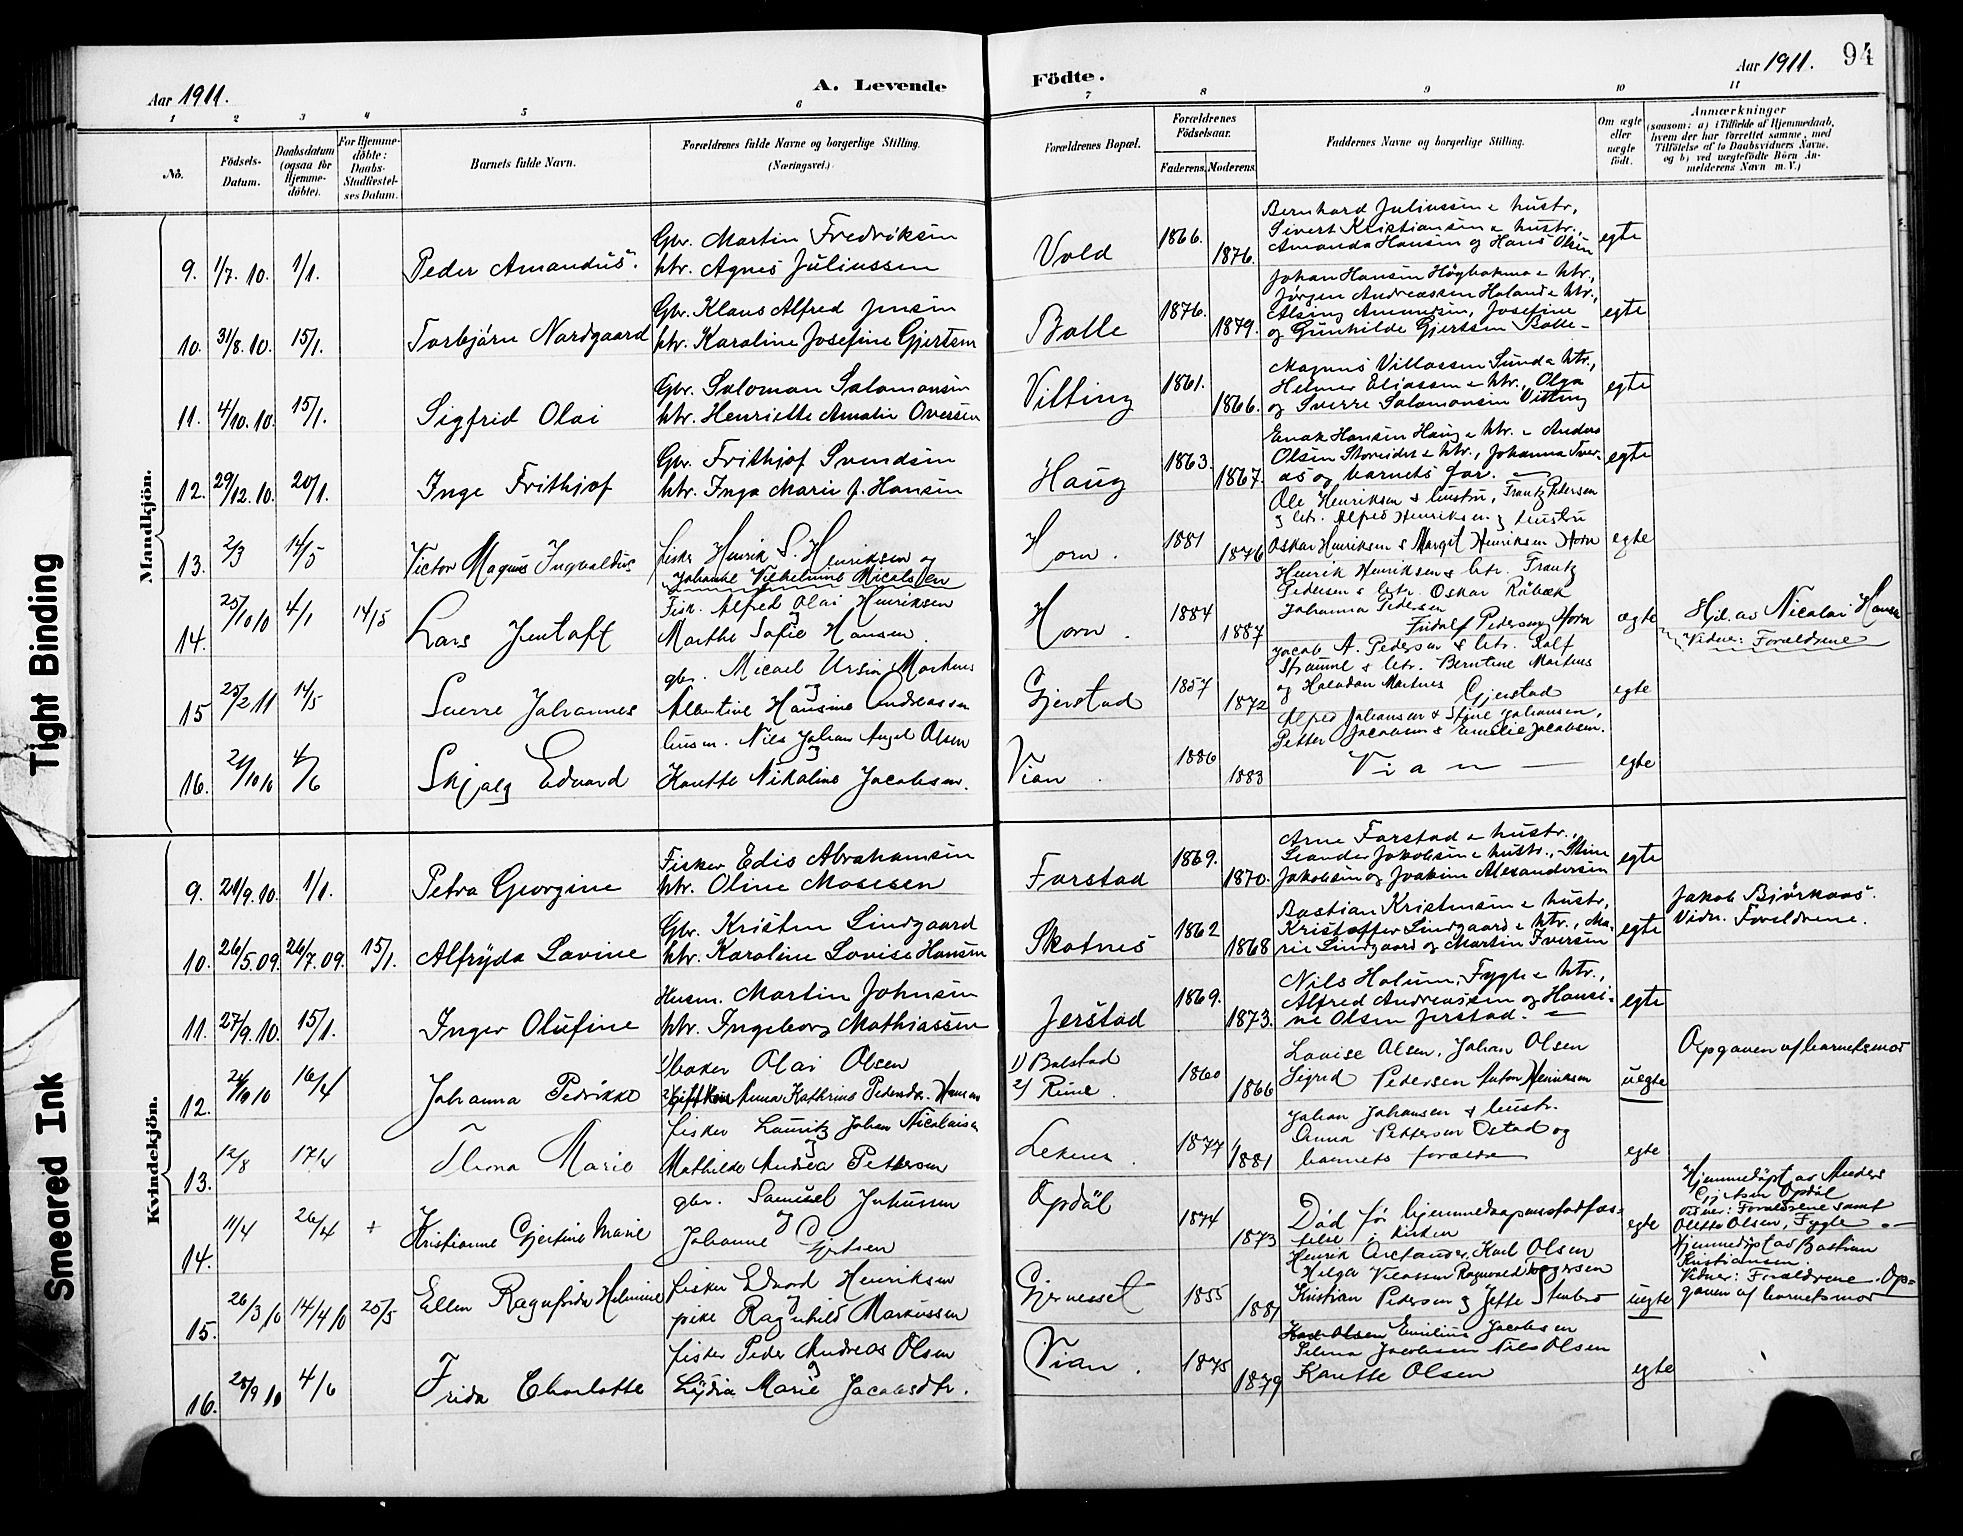 Aar 1911.
A. Levende
Födte.
Aar 1911.
94
1 2 3 4 5 6 7 8 9 10 11
No.
Födsels-
Datum.
Daabsdatum
(ogsaa for
Hjemme-
döbte).
For Hjemme-
döbte:
Daabs-
Stadfestel-
ses Datum.
Barnets fulde Navn.
Forældrenes fulde Navne og borgerlige Stilling.
(Næringsvei.)
Forældrenes Bopæl.
Forældrenes
Födselsaar.
Faderens. Moderens.
Faddernes Navne og borgerlige Stilling.
Om ægte
eller
uægte
födt.
Anmærkninger
(saasom: a) i Tilfælde af Hjemmedaab,
hvem der har forrettet samme, med
Tilföielse af to Daabsvidners Navne,
og b) ved uægtefödte Börn An-
melderens Navn m. V.)
Mandkjön.
9. 1/7. 10. 1/1. Peder Amandus.
Gbr. Martin Fredriksen
htr. Agnes Juliussen
Vold 1866. 1876.
Bernhard Juliussen & hustr,
Sivert Kristiansen & hustr.,
Amanda Hansen og Hans Olsen
egte
10. 31/8. 10. 15/1. Torbjørn Nordgaard
Gbr. Klaus Alfred Jensen
htr. Karoline Josefine Gjertsen
Bolle 1876. 1879.
Johan Hansen & htr.,
Jørgen Andreassen Holand & htr.,
Josefine
og Gunhilde Gjertsen Bolle-
egte
11. 4/10. 10. 15/1. Sigfrid Olai
Gbr. Salomon Salomonsen
htr. Henriette Amalie Oversen
Vitting 1861. 1866.
Magnus Villassen Sund & htr.,
Helmer Eliassen & htr., Olga
og Sverre Salomonsen Vitting
egte
12. 29/12. 10. 20/1. Inge Frithjof
Gbr. Frithjof Svendsen
htr. Inga Marie J. Hansen
Haug 1863. 1867.
Enok Hansen Haug & htr. - Anders
Olsen & htr., Johanna Tver-
ås og barnets far.
egte
13. 2/3 14/5 Victor Magnus Ingvaldus
fisker Henrik S. Henriksen og
Johanne Vilhelmine Nicolaisen
Horn. 1881 1876
Ole Henriksen & hustru, Frantz Pedersen
& htr. Alfred Henriksen & hustru
Oskar Henriksen & Margit Henriksen Horn
egte
14. 25/10 10 4/1 14/5 Lars Jentoft
Fisk. Alfred Olai Henriksen
Marthe Sofie Hansen.
Horn. 1884 1887
Henrik Henriksen & htr. Frantz
Pedersen & htr. Oskar Råbæk
Johanna Pedersen
Fridolf Pedersen Horn
ægte
Hjd. av Nicolai Hansen
Vidner: Forældrene
15 25/2 11 14/5 Sverre Johannes
gbr. Micael Ursin Martnes
Albertine Hansine Andreassen
Gjerstad 1857 1872
Jacob A. Pedersen & htr. Rolf
Strømme & htr. Berntine Martnes
og Halvdan Martnes Gjerstad
egte
16. 21/10 10 4/6 Skjalg Edvard
husm. Nils Johan Angel Olsen
Hanette Nikoline Jacobsen.
Vian. 1886 1883
Alfred Johansen & Stine Johansen,
Petter Jacobsen & Emelie Jacobsen.
Vian
egte
Kvindekjön.
9. 21/9. 10. 1/1. Petra Georgine
Fisker Edis Abrahamsen
htr. Oline Mosesen
Farstad 1869. 1870.
Arne Farstad & hustr.,
Leander Jakobsen & hustr., Stine
Jakobsen og Joakim Alexandersen
egte
10. 26/5. 09. 26/7. 09. 15/1. Alfryda Lovine
Gbr. Kristen Lindgaard
htr. Karoline Lovise Hansen
Skotnes 1862 1868
Bastian Kristensen & hustr,
Kristoffer Lindgaard & htr., Ma-
rie Lindgaard og Martin Iversen
egte
Jakob Bjørkaas.
Vidn. Foreldrene.
11. 27/9. 10. 15/1. Inger Olufine
Husm. Martin Johnsen
htr. Ingeborg Mathiassen
Jerstad 1869. 1873.
Nils Holum, Fygle & htr.,
Alfred Andreassen og Hansi-
ne Olsen Jerstad.
egte
12. 24/9 10 16/4 Johanna Pedrikke
1) baker Olai Olsen
2) Anna Kathrine Pedersdtr. Hansen
1) Balstad
2) Rine. 1860 1866
Lovise Olsen, Johan Olsen
Sigrid Pedersen Anton Henriksen
uegte
Opgaven af barnets mor
13. 12/8 17/4 Thona Marie
fisker Lauritz Johan Nicolaisen
og
Mathilde Andrea Pettersen
Leknes. 1877 1881
Johan Johansen & hustr.
Anna Pettersen Ostad og
barnets forældre
egte
14. 11/4 26/4 + Kristianne Gjertine Marie
gbr. Samuel Juliussen
og
Johanne Gjertsen
Opdøl 1874 1873
Död før hjemmedaapens stadfæs-
telse i kirken
egte
Hjemmedøpt av Anders
Gjertsen Opdøl
Vidner: Forældrene samt
Olette Olsen, Fygle.
15. 26/3 10 14/4 10 25/5 Ellen Ragnfrida Helmine
fisker Edvard Henriksen
og
pike Ragnhild Markussen
Gjernesset 1855 1881
Henrik Arctander, Karl Olsen
Helga Vilassen Ragnvald Torgersen
Kristian Pedersen & Jette Stenbro
uegte
Hjemmedøpt av Bastian
Kristiansen.
Vidner: Forældrene. Op-
gaven af barnets mor
16. 28/9 10 4/6 Frida Charlotte
fisker Peder Andreas Olsen
Lydia Marie Jacobsdtr.
Vian. 1875 1879
Karl Olsen Emilius Jacobsen
Selma Jacobsen Nils Olsen
Hanette Olsen
egte
Tight Binding
Smeared Ink